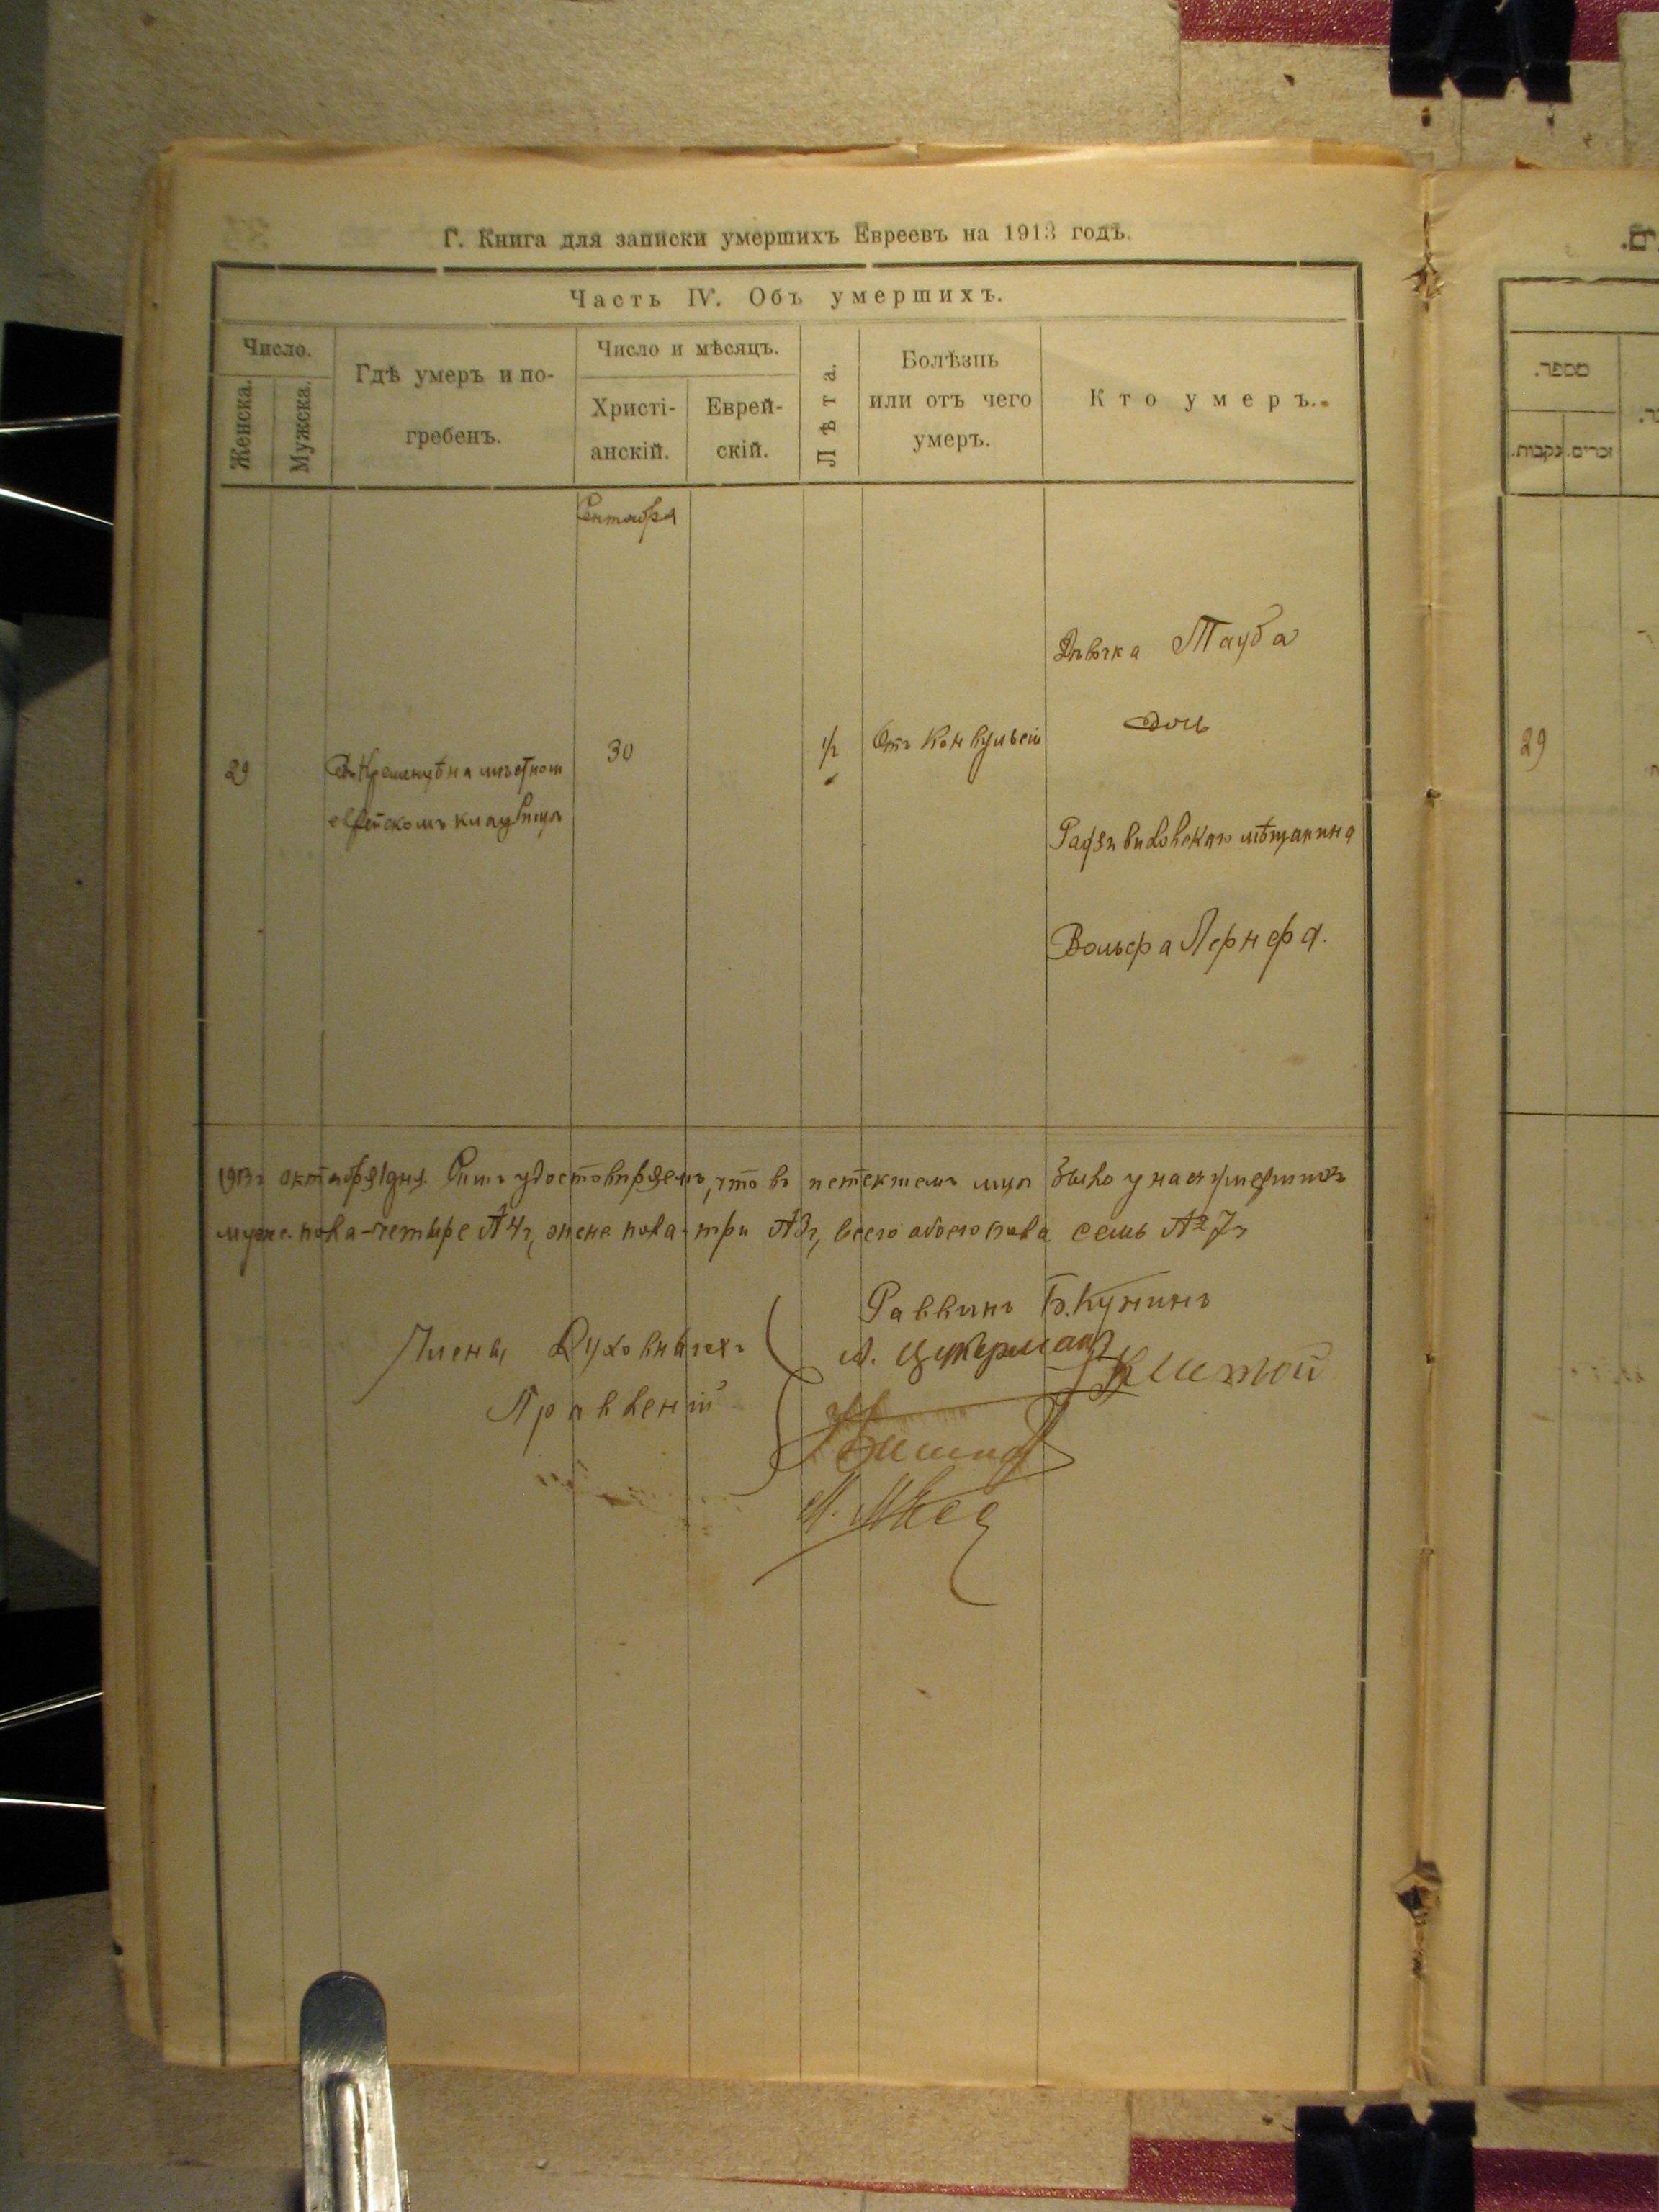 Г. Книга для записки умершихъ Евреевъ на 1913 годъ.
Часть IV. Объ умершихъ.
Число.
Женска.
Мужска.
Гдѣ умеръ и по-
гребенъ.
Число и мѣсяцъ.
Христі-
анскій.
Еврей-
скій.
Лѣта.
Болѣзнь
или отъ чего
умеръ.
Кто умеръ.
Сентября
29
Въ Кременцѣ на мѣстном
еврейскомъ кладбищѣ
30
1/2
Отъ Конвульсій
Дѣвочка Тауба
дочь
Радзивиловскаго мѣщанина
Вольфа Лернера.
1913г октября 1 дня. Симъ удостовѣряемъ, что въ истекшемъ мцѣ было у насъ умершихъ
мужс. пола-четыре № 4, женс пола-три № 3, всего обоего пола семь № 7
Раввинъ Б. Кунинъ
Члены Духовныхъ
Правленій
А. Цукерманъ
מספר.
נקבות.
זכרים.
29